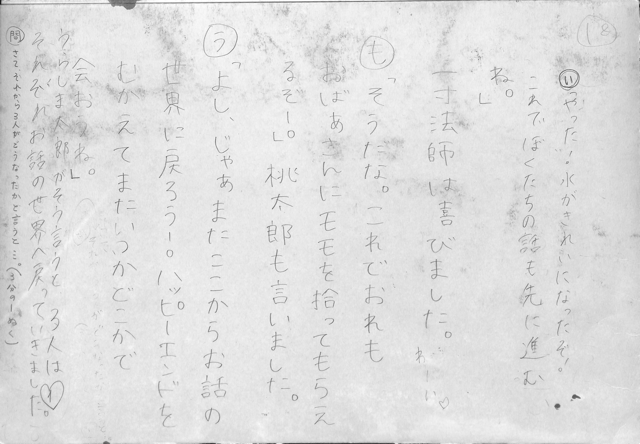 18
い「やった！水がきれいになったぞ！
これでぼくたちの話も先に進む
ね。」
一寸法師は喜びました。わーい♡
も「そうだな。これでおれも
おばあさんにモモを拾ってもらえ
るぞー。」桃太郎も言いました。
う「よし、じゃあまたここからお話の
世界に戻ろうー。ハッピーエンドを
むかえてまたいつかどこかで
会おうね。」
うらしま太郎がそう言うと3人は
それぞれお話の世界へ戻っていきました。
問 さて、それから3人がどうなったかと言うと…。